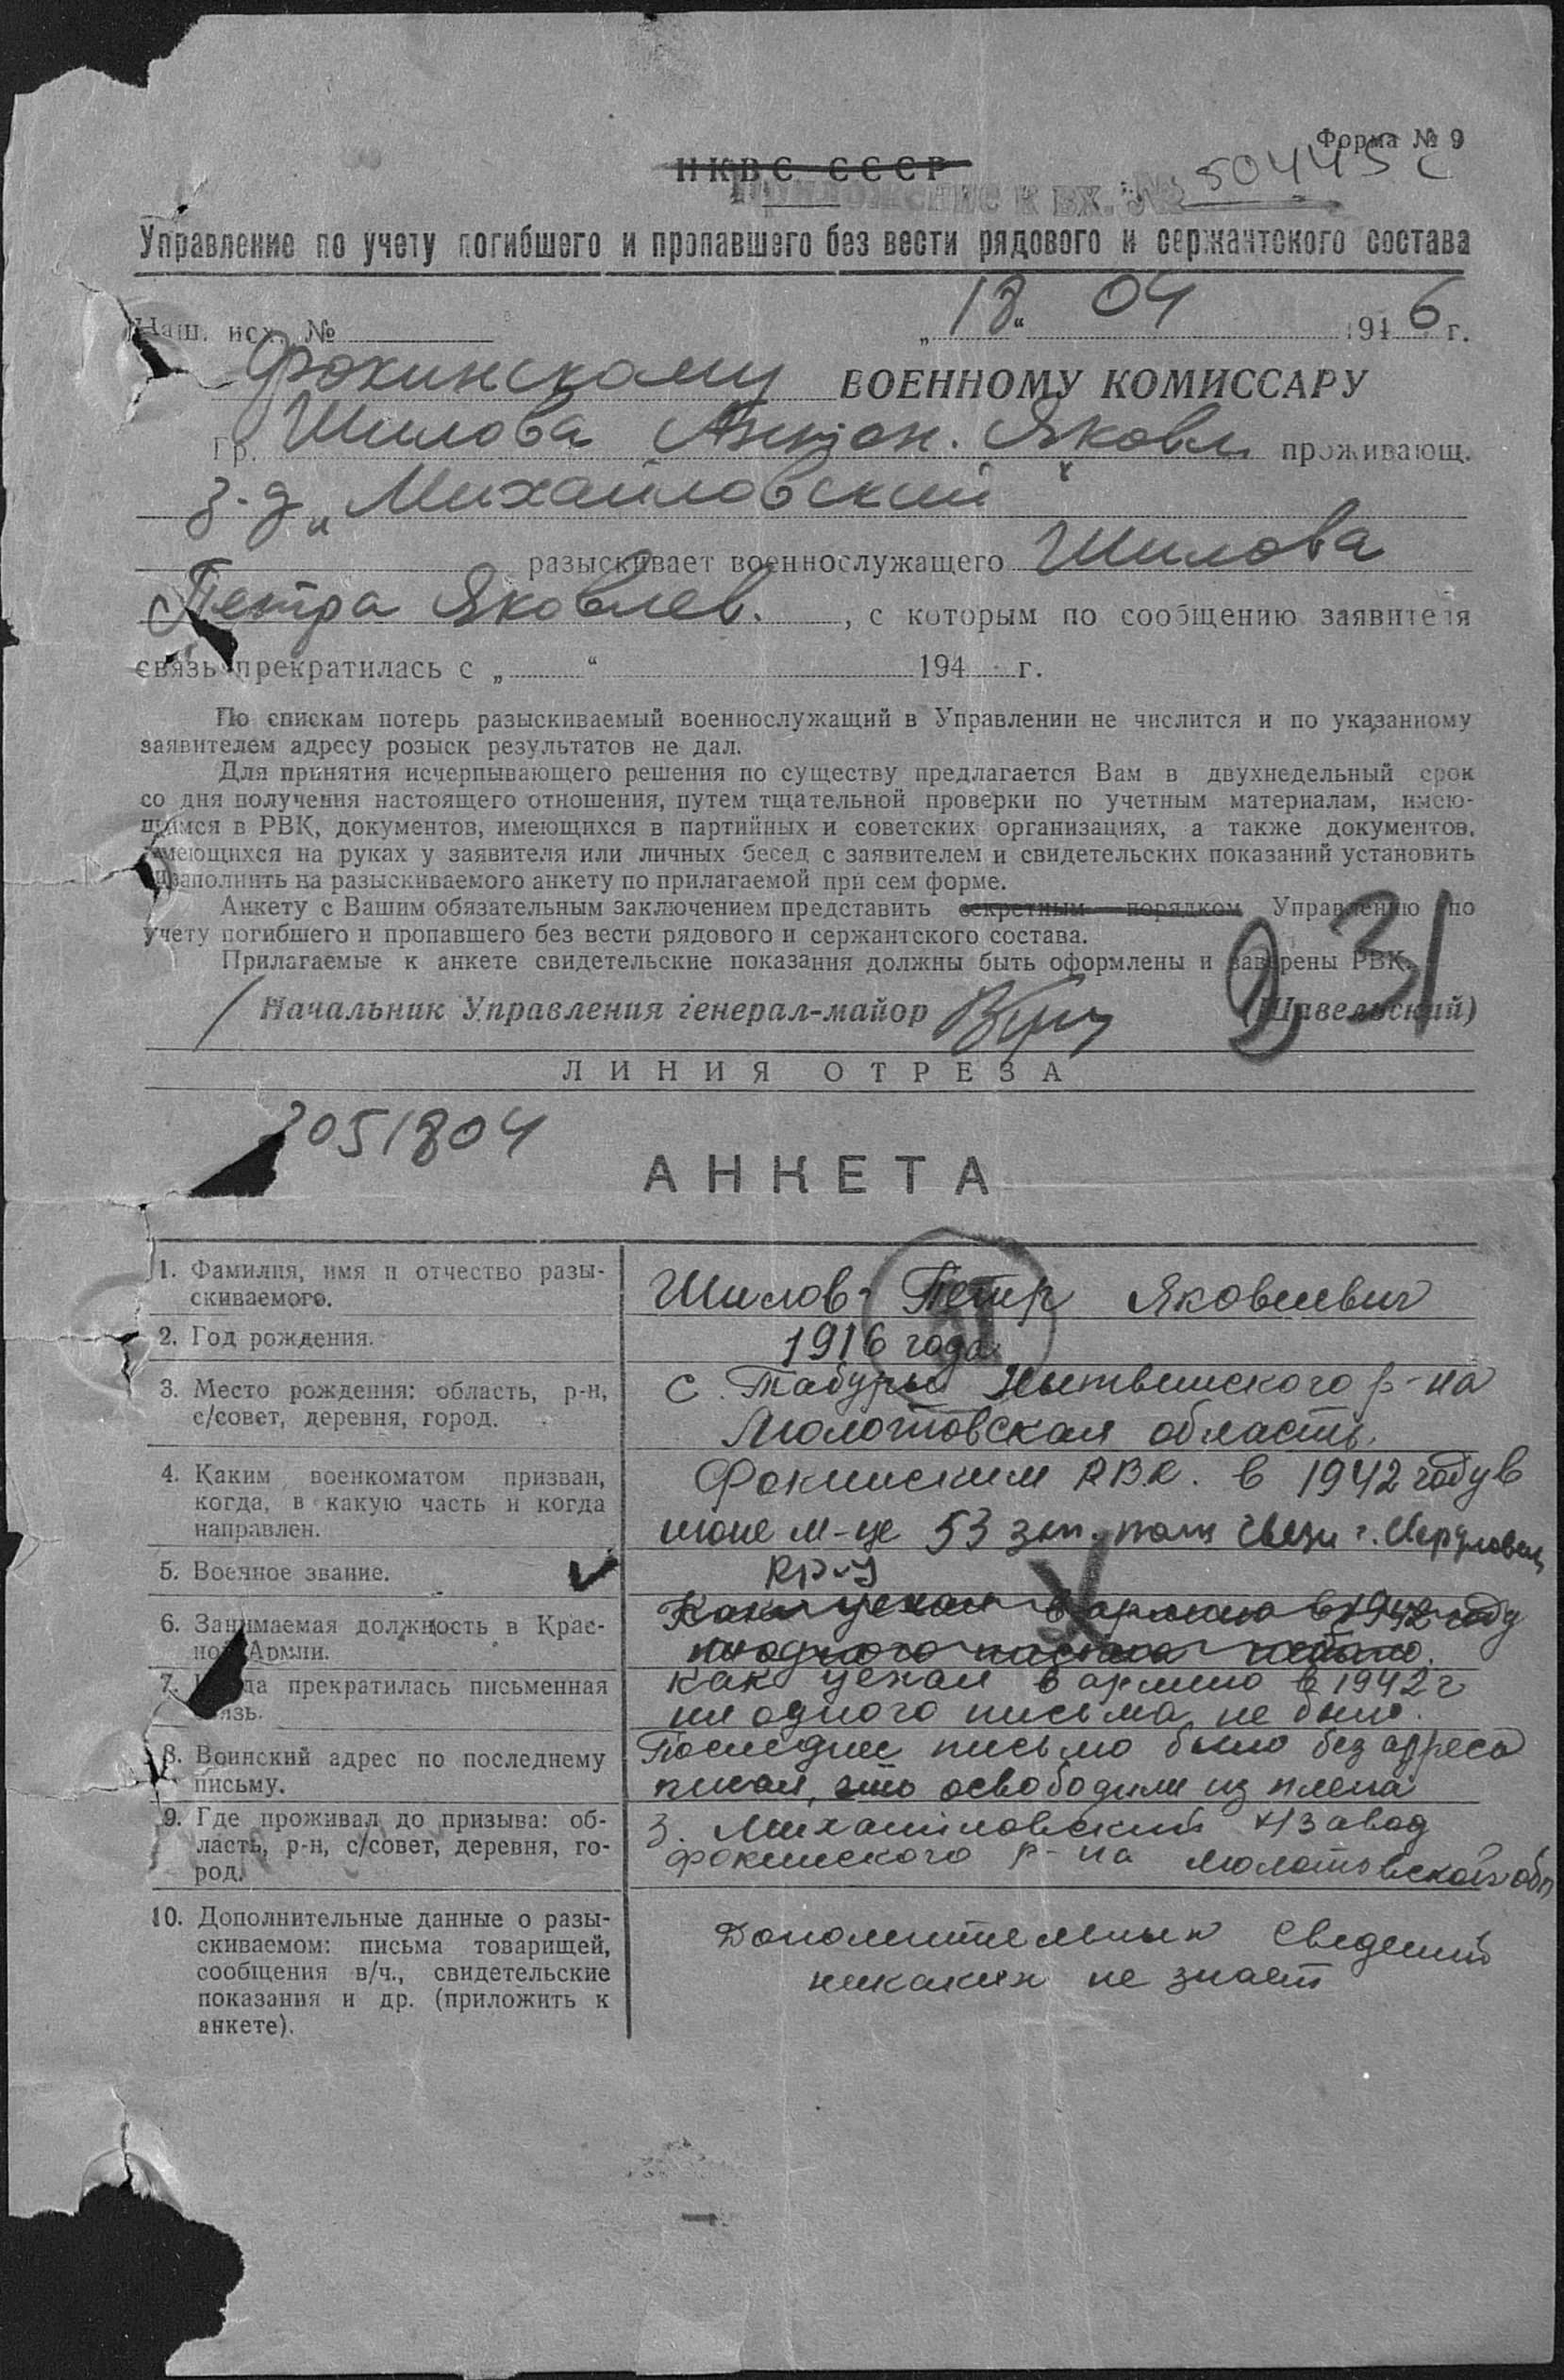 Форма № 9
НКВС СССР
Приложение к вх. № 504445с
Управление по учету погибшего и пропавшего без вести рядового и сержантского состава
Наш. исх. № „18“ 04 1946 г.
Фокинскому ВОЕННОМУ КОМИССАРУ
Гр. Шилова Антон. Яковл проживающ.
з-д „Михайловский“
разыскивает военнослужащего Шилова
Петра Яковлев. , с которым по сообщению заявителя
связь прекратилась с „ “ 194 г.
По спискам потерь разыскиваемый военнослужащий в Управлении не числится и по указанному
заявителем адресу розыск результатов не дал.
Для принятия исчерпывающего решения по существу предлагается Вам в двухнедельный срок
со дня получения настоящего отношения, путем тщательной проверки по учетным материалам, имею-
щимся в РВК, документов, имеющихся в партийных и советских организациях, а также документов,
имеющихся на руках у заявителя или личных бесед с заявителем и свидетельских показаний установить
и заполнить на разыскиваемого анкету по прилагаемой при сем форме.
Анкету с Вашим обязательным заключением представить секретным порядком Управлению по
учету погибшего и пропавшего без вести рядового и сержантского состава.
Прилагаемые к анкете свидетельские показания должны быть оформлены и заверены РВК.
31
Начальник Управления генерал-майор (Шавельский)
ЛИНИЯ ОТРЕЗА
051804
АНКЕТА
1. Фамилия, имя и отчество разы-
скиваемого.
Шилов Петр Яковлевич
2. Год рождения.
1916 года
3. Место рождения: область, р-н,
с/совет, деревня, город.
с. Табуры Нытвинского р-на
Молотовская область.
4. Каким военкоматом призван,
когда, в какую часть и когда
направлен.
Фокинским РВК. в 1942 году в
июне м-це 53 зап. полк связи г. Свердловск
5. Военное звание.
кр-ц
6. Занимаемая должность в Крас-
ной Армии.
Как уехал в армию в 1942 году
ни одного письма не было.
7. Когда прекратилась письменная
связь.
как уехал в армию в 1942 г
ни одного письма не было.
8. Воинский адрес по последнему
письму.
Последнее письмо было без адреса
писал, что освободили из плена
9. Где проживал до призыва: об-
ласть, р-н, с/совет, деревня, го-
род.
з. Михайловский завод
Фокинского р-на Молотовской обл
10. Дополнительные данные о разы-
скиваемом: письма товарищей,
сообщения в/ч., свидетельские
показания и др. (приложить к
анкете).
Дополнительных сведений
никаких не знает